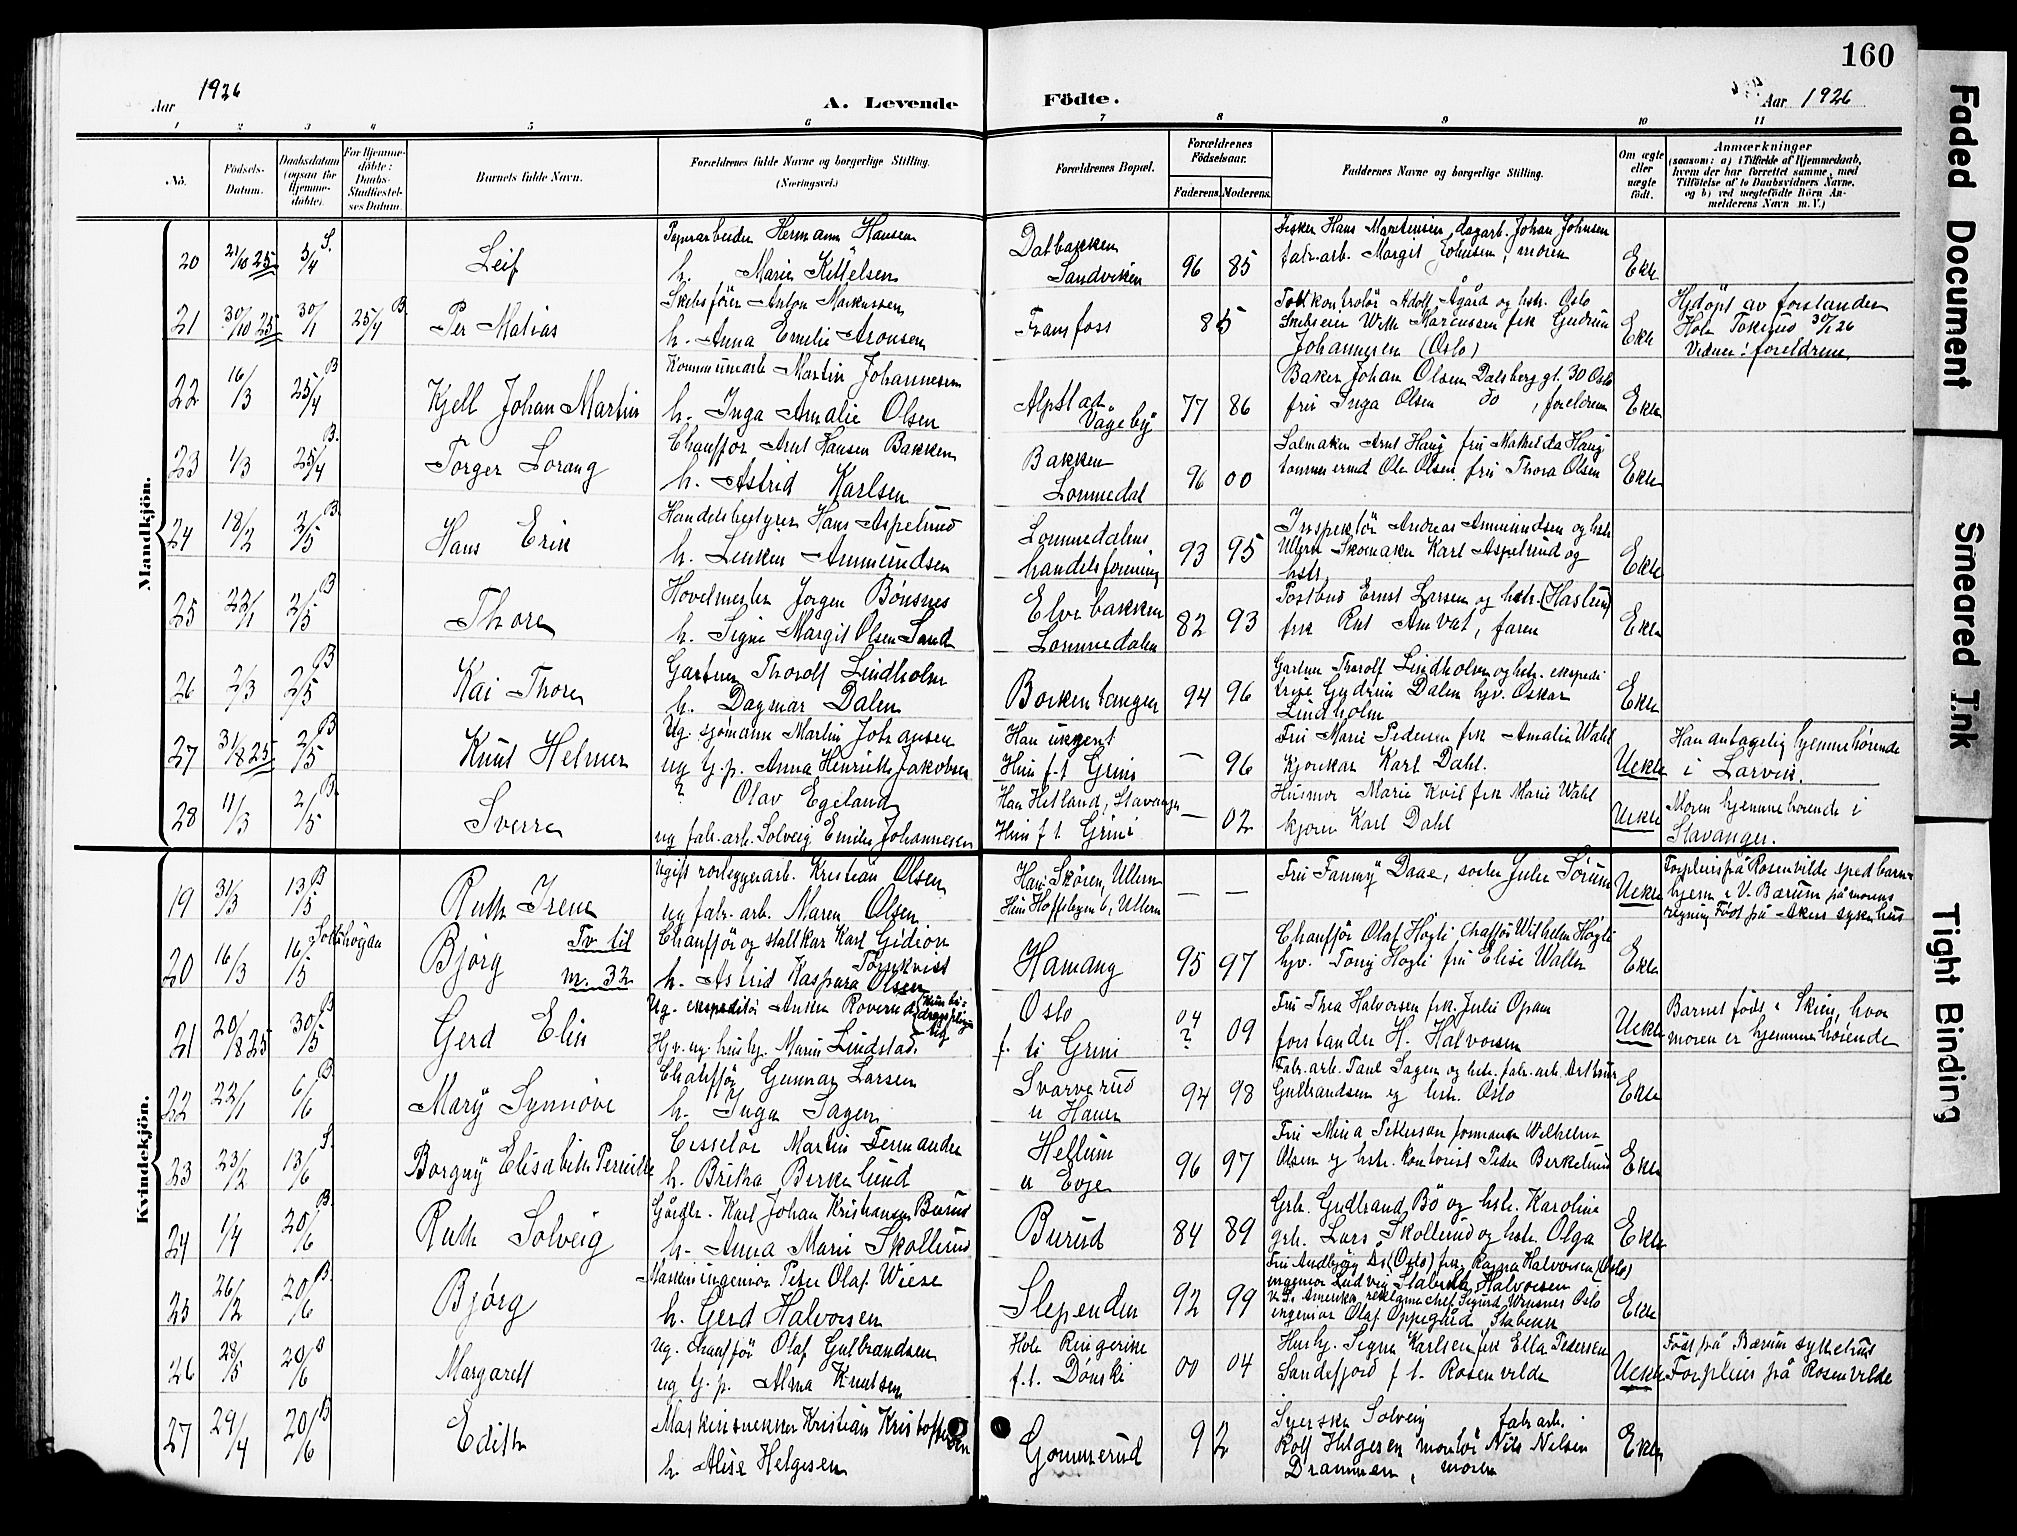 160
Aar 1926
A. Levende Födte.
Aar 1926
1 2 3 4 5 6 7 8 9 10 11
Nö.
Födsels-Datum.
Daabsdatum (ogsaa for Hjemme-döbte).
For Hjemme-döbte: Daabs-Stadfæstel-ses Datum.
Barnets fulde Navn.
Forældrenes fulde Navne og borgerlige Stilling.
(Næringsvei.)
Forældrenes Bopæl.
Forældrenes Födselsaar.
Faderens. Moderens.
Faddernes Navne og borgerlige Stilling.
Om ægte eller uægte födt.
Anmærkninger
(saasom: a) i Tilfælde af Hjemmedaab, hvem der har forrettet samme, med Tilföielse af to Daabsvidners Navne, og b) ved uægtefödte Börn Anmelderens Navn m. V.)
Mandkjön.
20 21/10 25 5/4 S. Leif
Hermann Hansen
h. Marie Kittelsen
Dalbakken
Sandviken
96 85
Fisker Hans Martinsen, dagarb. Johan Johnsen
fabr.arb. Margit Johnsen, moren
Ekte
21 30/10 25 30/1 25/4 B. Per Matias
Anton Markussen
h. Anna Emilie Aronsen
Framfoss
85
Tollkontrolör Adolf Ågård og hstr. Oslo
Marcussen frk Gudrun
Johannesen (Oslo)
Ekte
Hjdöpt av forstander
Hole 30/1 26
Vidner: foreldrene
22 16/3 25/4 B Kjell Johan Martin
Kommunearb Martin Johannesen
h. Inga Amalie Olsen
Alpstad
Vågeby
77 86
Baker Johan Olsen Dalsberg gt. 30 Oslo
fru Inga Olsen do, foreldrene
Ekte
23 1/3 25/4 B. Torger Lorang
Chaufför Arnt Hansen Bakken
h. Astrid Karlsen
Bakken
Lommedal
96 00
Salmaker Arnt Haug fru Mathilda Haug
tömmermd Ole Olsen fru Thora Olsen
Ekte
24 18/2 2/5 B Hans Erik
Handelsbestyrer Hans Aspelund
h. Lenken Ammundsen
Lommedalens
handelsforening
93 95
Inspektör Andreas Ammundsen og hstr
Ullern Skomaker Karl Aspelund og
hstr.
Ekte
25 22/1 2/5 B Thore
Hovelmester Jörgen Bönsnes
h. Signe Margit Olsen Sand
Elvebakken
Lommedalen
82 93
Postbud Ernst Larsen og hstr. (Haslum)
frk Rut Amvat, faren
Ekte
26 2/3 2/5 B Kai Thore
Gartner Thorolf Lindholm
h. Dagmar Dalen
Borkentangen
94 96
Gartner Thorolf Lindholm og hstr. ekspedi
trise Gudrun Dalen hjv. Oskar
Lindholm
Ekte
27 31/8 25 2/5 B Knut Helmer
Ug. sjömann Martin Johansen
ug G.p. Anna Henrikke Jakobsen
Han ukjent
Hun f.t Grini
— 96
Fru Marie Pedersen frk Amalie Wahl
Karl Dahl.
Uekte
Han antagelig hjemmehörende
i Larvik.
28 11/3 2/5 B. Sverre
? Olav Egeland
ug fabr.arb. Solveig Emilie Johannesen
Han Hetland, Stavanger
Hun f t Grini
— 02
Husmor Marie Kvil frk Marie Wahl
Karl Dahl
Uekte
Moren hjemmehörende i
Stavanger.
Kvindekjön.
19 31/3 13/5 B Ruth Irene
Ugift rörleggerarb. Kristian Olsen
ug fabr. arb. Maren Olsen
Han: Skören, Ullern
Hun Hoffsbyen 6, Ullern
— —
Fru Fanny Daae, söster Julie Sörum
Uekte
Forpleies på Rosenvilde spedbarn-
hjem i V. Bærum på morens
regning Född på Akers sykehus
20 16/3 16/5 Bjørg Tv til nr. 32
Chaufför og stallkar Karl Gidion
Törnkvist
h. Astrid Kaspara Olsen
Hamang
95 97
Chaufför Olaf Högli chafför Wilhelm Högli
hjv. Tony Högli fru Elise Walter
Ekte
21 20/8 25 30/5 B Gerd Elin
Ug. ekspeditör
Hjv. ug. hushj. Marie Lindstad.
Oslo
f. ti Grini
04 ? 09
Fru Thea Halvorsen frk. Julie Opam
forstander H. Halvorsen
Uekte
Barnet föds i Skien, hvor
moren er hjemmehörende
22 22/1 6/6 B Mary Synnöve
Chaufför Gunnar Larsen
h. Inga Sagen
Svarverud
n Hauer
94 98
Fabr.arb. Paul Sagen og hstr. fabr.arb. Arthur
Gulbrandsen og hstr. Oslo
Ekte
23 23/2 13/6 S Borgny Elisabeth Pernille
Ciselör Martin Fermander
h. Britha Berkelund
Hellum
n Evje
96 97
Fru Mina Petterson formann Wilhelm
Olsen og hstr. kontorist Peder Berkelund
Ekte
24 1/4 20/6 B. Ruth Solveig
Gårdbr. Karl Johan Kristiansen Burud
h. Anna Marie Skollerud
Burud
84 89
Grb. Gudbrand Bö og hstr. Karoline
grb. Lars Skollerud og hstr. Olga
Ekte
25 26/2 20/6 B. Bjørg
Maskiningeniör Peter Olaf Wiese
h. Gerd Halvorsen
Slependen
92 99
Fru Andbjörg Ås (Oslo) frk. Ragna Halvorsen (Oslo)
ingeniör Ludvig Halvorsen
Amerika, reklamechef Sigurd Oslo
ingeniör Olaf Oppegård Stabekk
Ekte
26 28/5 20/6 Margarett
ug. chaufför Olaf Gulbrandsen
ug G.p. Alma Knutsen
Hole Ringerike
f.t. Dönski
00 04
Hushj. Signe Karlsen frk Ella Pedersen
Sandefjord f t. Rosenvilde
Uekte
Född på Bærum sykehus
Forpleies på Rosenvilde
27 29/4 20/6 B Edith
Maskinsnekker Kristian Kristoffersen
h. Alise Helgesen
Gommerud
92
Syerske Solveig , fabr arb.
Rolf Helgesen montör Nils Nilsen
Drammen, moren
Ekte
Faded Document
Smeared Ink
Tight Binding